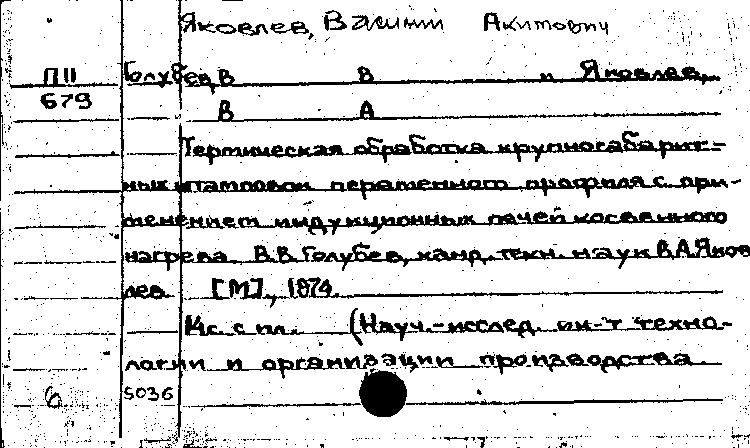 Яковлев, Василий Акимович
П11 Голубев, В В и Яковлев,
679 В А
Термическая обработка крупногабарит-
ных штамповок переменного профиля с при-
менением индукционных печей косвенного
нагрева. В.В. Голубев, канд. техн. наук В.А. Яков
лев [М], 1974.
Ис. с ил. (Науч.-исслед. ин-т техно-
логии и организации производства.
6 5036